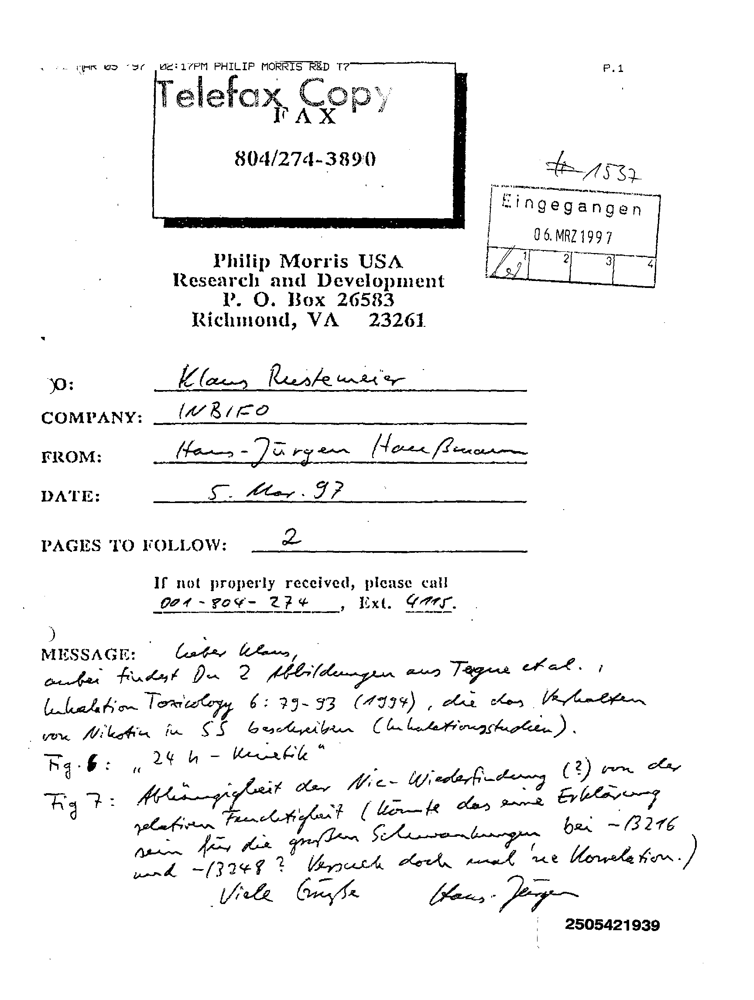 MAR 05 '97 02:17PM PHILIP MORRIS R&D T7 P.1
Telefax Copy
FAX
804/274-3890
# 1537
Eingegangen
06. MRZ 1997
1 2 3 4
Philip Morris USA
Research and Development
P. O. Box 26583
Richmond, VA 23261
O: Klaus Rustemeier
COMPANY: INBIFO
FROM: Hans-Jürgen Haußmann
DATE: 5. Mar. 97
PAGES TO FOLLOW: 2
If not properly received, please call
001-804-274, Ext. 4115.
MESSAGE: Lieber Klaus,
anbei findest Du 2 Abbildungen aus Teque et al.,
Inhalation Toxicology 6: 79-93 (1994), die das Verhalten
von Nikotin in SS beschreiben (Inhalationsstudien).
Fig. 6: „24 h - Kinetik"
Fig 7: Abhängigkeit der Nic-Wiederfindung (?) von der
relativen Feuchtigkeit (könnte das eine Erklärung
sein für die großen Schwankungen bei -13216
und -13248? Versuch doch mal 'ne Korrelation.)
Viele Grüße Hans-Jürgen
2505421939